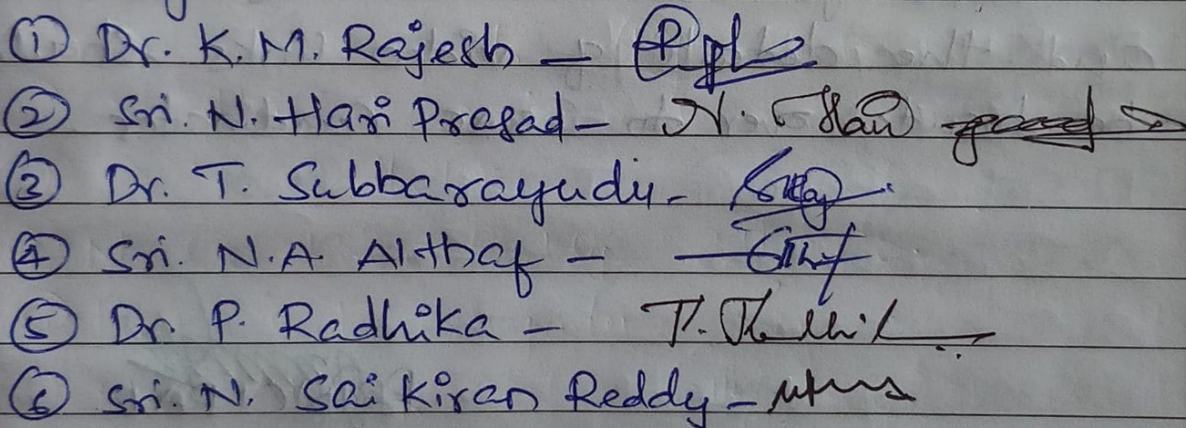 ① Dr. K.M. Rajesh -
② Sri. N. Hari Prasad - N. Hari
③ Dr. T. Subbarayudu -
④ Sri. N.A. Althaf -
⑤ Dr. P. Radhika -
⑥ Sri. N. Sai Kiran Reddy -